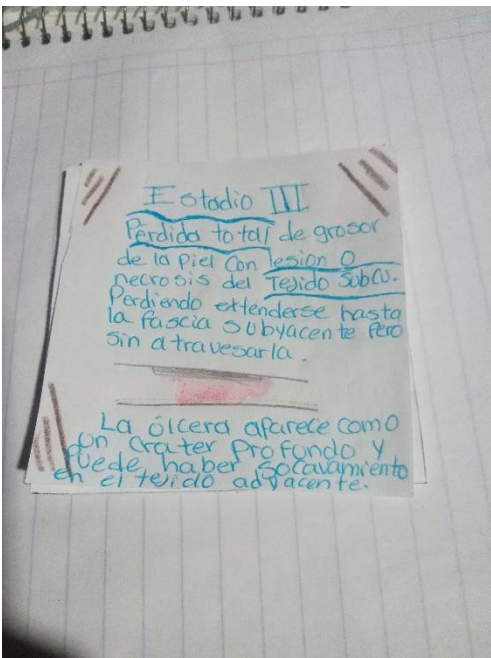 Estadio III
Pérdida total de grosor
de la piel con lesion o
necrosis del Tejido Subcu.
Perdiendo extenderse hasta
la fascia subyacente pero
sin atravesarla.
La úlcera aparece como
un crater profundo y
puede haber socavamiento
en el tejido adyacente.